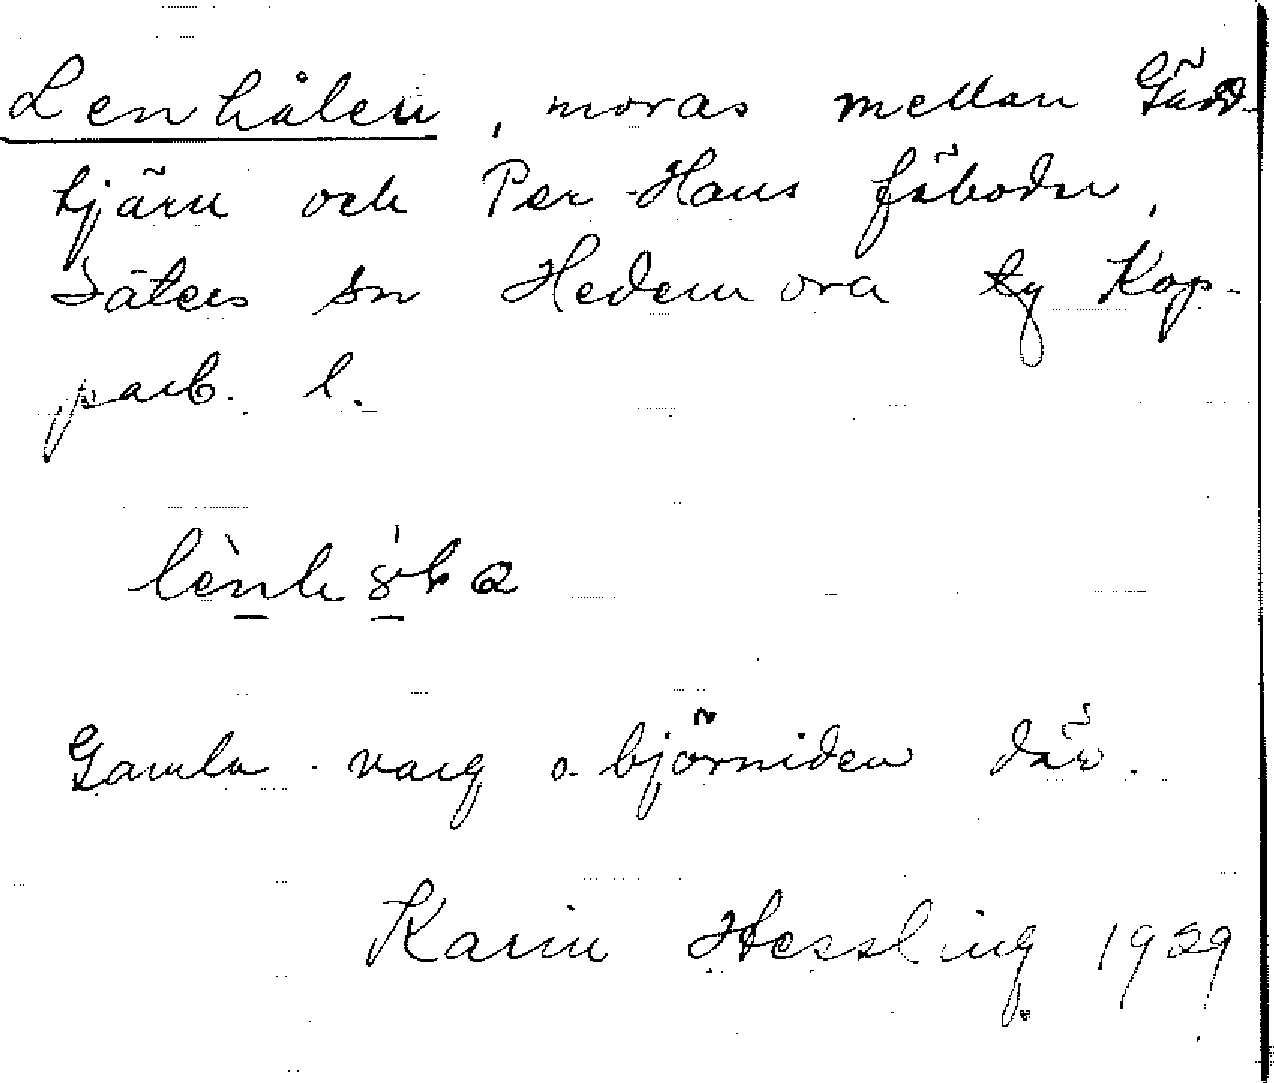 Lenhålen, moras mellan Gärd-
tjärn och Per-Hans fäbodar,
Säters sn Hedemora tg Kop-
parb. l.
Gamla varg o. björniden där.
Karin Hessling 1929